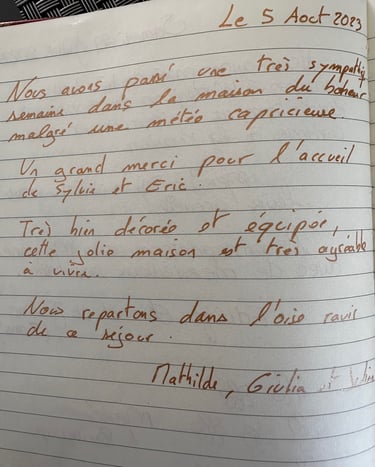 Le 5 Aout 2023
Nous avons passé une très sympathique
semaine dans la maison du bonheur
malgré une météo capricieuse.
Un grand merci pour l'accueil
de Sylvie et Eric.
Très bien décorée et équipée,
cette jolie maison est très agréable
à vivre.
Nous repartons dans l'oise ravis
de ce séjour.
Mathilde, Giulia et